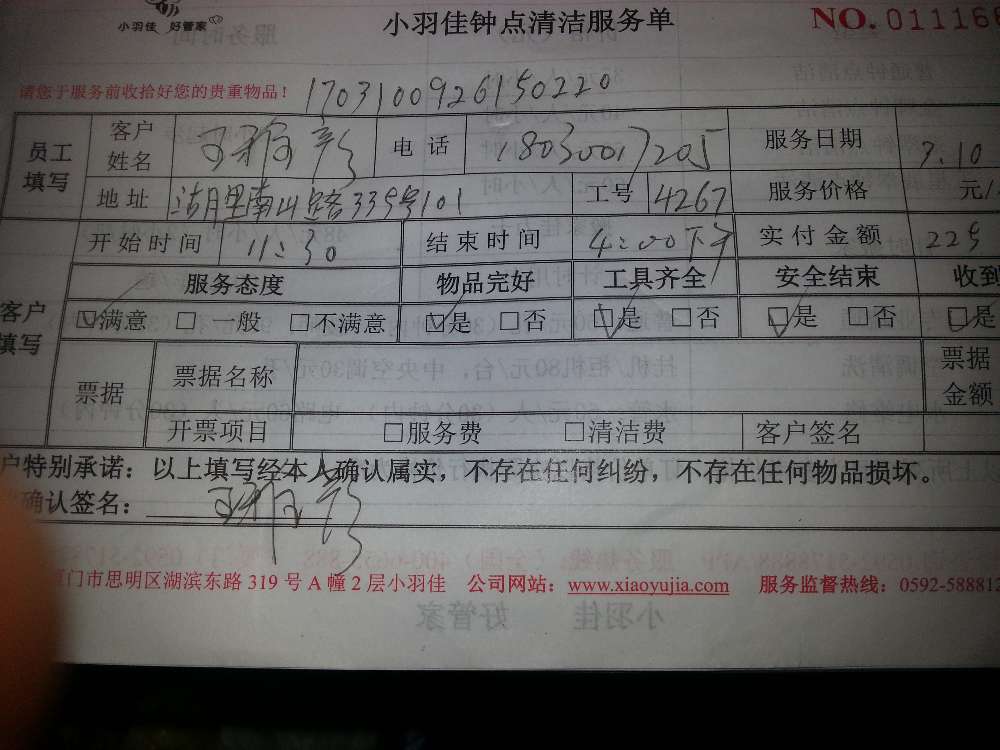 小羽佳 好管家
小羽佳钟点清洁服务单 NO. 011166
请您于服务前收拾好您的贵重物品！ 1703100926150220
员工填写 客户姓名 王雅彭 电话 18030017205 服务日期 3.10
地址 湖里南山路335号101 工号 4267 服务价格 元/
开始时间 11:30 结束时间 4:00下午 实付金额 225
客户填写 服务态度 物品完好 工具齐全 安全结束 收到
☑满意 □一般 □不满意 ☑是 □否 ☑是 □否 ☑是 □否 ☑是
票据 票据名称 票据金额
开票项目 □服务费 □清洁费 客户签名
户特别承诺：以上填写经本人确认属实，不存在任何纠纷，不存在任何物品损坏。
确认签名：王雅彭
门市思明区湖滨东路 319 号 A 幢 2 层小羽佳 公司网站：www.xiaoyujia.com 服务监督热线：0592-588812